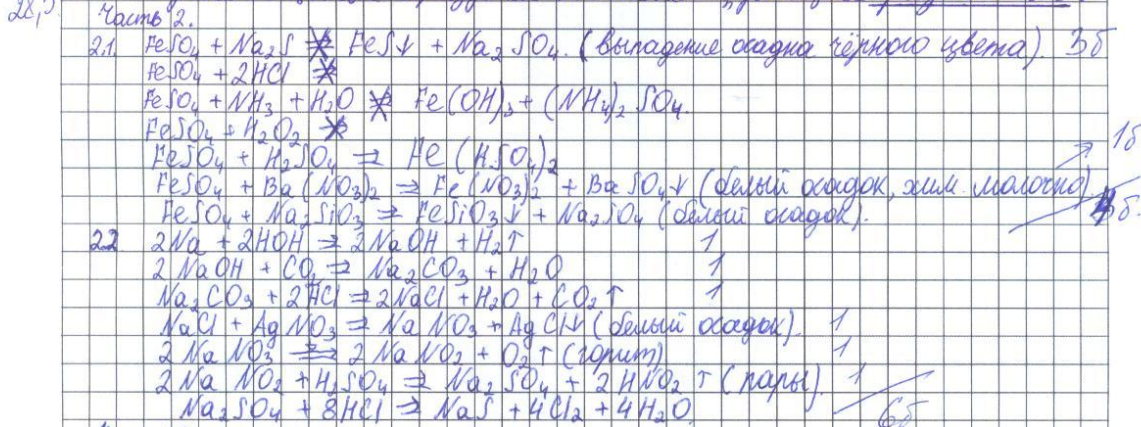 28,5
Часть 2.
2.1. FeSO₄ + Na₂S ⇒ FeS↓ + Na₂SO₄. (выпадение осадка чёрного цвета). 3б
FeSO₄ + 2HCl ⇒
FeSO₄ + NH₃ + H₂O ⇒ Fe(OH)₃ + (NH₄)₂SO₄.
FeSO₄ + H₂O₂ ⇒
FeSO₄ + H₂SO₄ ⇒ Fe(HSO₄)₂ 1б
FeSO₄ + Ba(NO₃)₂ ⇒ Fe(NO₃)₂ + BaSO₄↓ (белый осадок, хим. молочно).
FeSO₄ + Na₂SiO₃ ⇒ FeSiO₃↓ + Na₂SO₄ (белый осадок). б.
2.2 2Na + 2HOH ⇒ 2NaOH + H₂↑ 1
2NaOH + CO₂ ⇒ Na₂CO₃ + H₂O 1
Na₂CO₃ + 2HCl ⇒ 2NaCl + H₂O + CO₂↑ 1
NaCl + AgNO₃ ⇒ NaNO₃ + AgCl↓ (белый осадок). 1
2NaNO₃ ⇒ 2NaNO₂ + O₂↑ (горит) 1
2NaNO₂ + H₂SO₄ ⇒ Na₂SO₄ + 2HNO₂↑ (пары). 1
Na₂SO₄ + 8HCl ⇒ NaS + 4Cl₂ + 4H₂O 6б